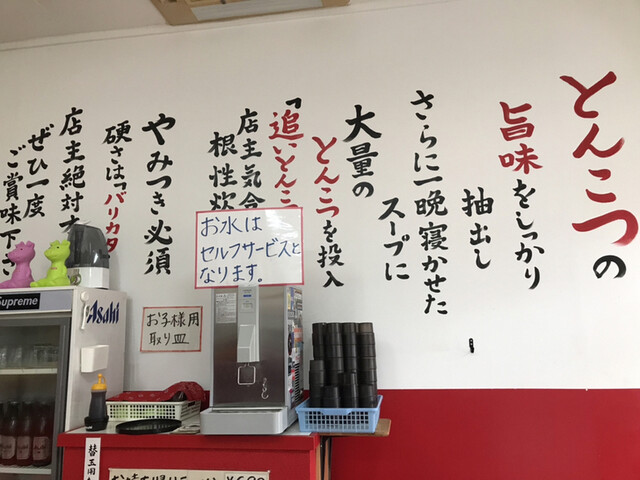 とんこつの
旨味をしっかり
抽出し
さらに一晩寝かせた
スープに
大量の
とんこつを投入
「追いとんこ
店主気合
根性炊
やみつき必須
硬さは「バリカタ
店主絶対
ぜひ一度
ご賞味下さ
お水は
セルフサービスと
なります。
お子様用
取り皿
Asahi
Supreme
替玉用